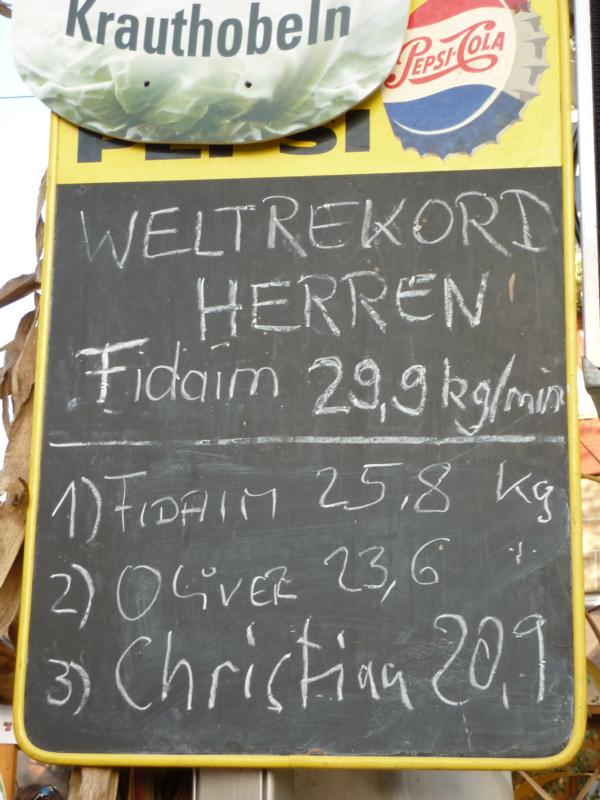 Krauthobeln
PEPSI-COLA
PEPSI
WELTREKORD
HERREN
Fidaim 29,9 kg/min
1) FIDAIM 25,8 kg
2) OLiVER 23,6 ·/·
3) Christian 20,9